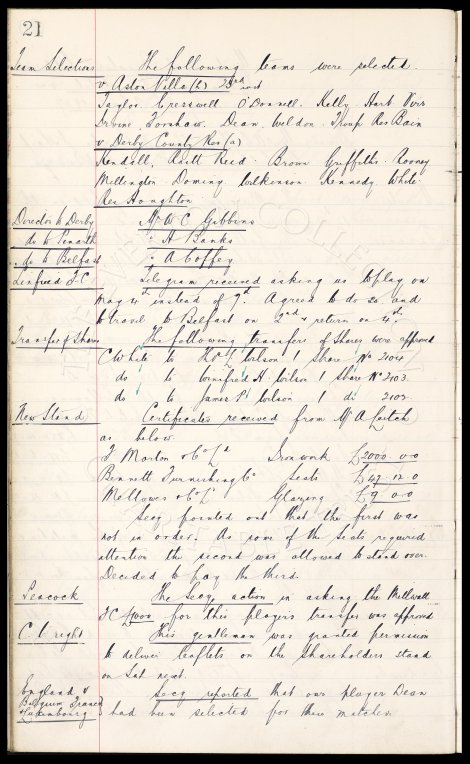 21
Team Selections The following teams were selected.
v Aston Villa (h) 23rd inst
Taylor. Cresswell O'Donnell. Kelly Hart Virr
Irvine, Forshaw. Dean, Weldon. Troup Res Bain
v Derby County Res (a)
Kendall, Raitt Reid. Brown Griffiths. Rooney
Millington Dominy. Wilkinson Kennedy. White
Res Houghton
Director to Derby Mr W C Gibbins
do to Penarth " H Banks
do to Belfast " A Coffey
Linfield F C Telegram received asking us to play on
May 4th instead of 9th. Agreed to do so and
to travel to Belfast on 2nd & return on 4th.
Transfer of Shares The following transfers of shares were approved
C White to Wilson 1 share No 2104
do to Winnifred H. Wilson 1 share No 2103
do to James P Wilson 1 do 2102
New Stand Certificates received from Mr A Leitch
as below
F Morton & Co Ld Ironwork £2000. 0. 0
Bennett Furnishing Co Seats £47. 12. 0
Mellowes & Co Ld Glazing £9. 0. 0
Secy pointed out that the first was
not in order. As some of the seats required
attention the second was allowed to stand over.
Decided to pay the third.
Peacock The Secy. action in asking the Millwall
FC £1000 for this players transfer was approved
This gentleman was granted permission
to deliver leaflets on the shareholders stand
on Sat next.
England v Secy reported that our player Dean
Belgium France
& Luxembourg } had been selected for these matches